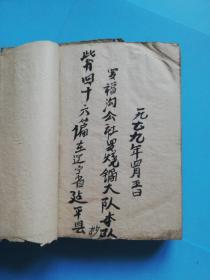 一九七九年四月五日
罗福沟公社黑烧锅大队本队
此书四十六篇在辽宁省建平县
抄